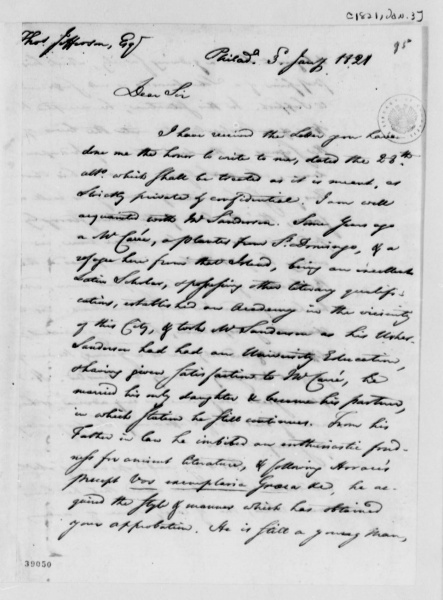 [1821, Jan. 3]
95
Thos Jefferson, Esqr
Philada. 3. Jany. 1821
Dear Sir
I have received the Letter you have
done me the honor to write to me, dated the 28th.
ulto. which shall be treated as it is meant, as
strictly private & confidential. I am well
acquainted with Mr Sanderson. Some years ago
a Mr Carré, a planter from St. Domingo, & a
refugee here from that Island, being an excellent
Latin Scholar, & possessing other literary qualifi-
cations, established an Academy in the vicinity
of this City, & took Mr Sanderson as his Usher.
Sanderson had had an University Education,
& having given Satisfaction to Mr Carré, he
married his only daughter & became his partner,
in which Station he still continues. From his
Father in law he imbibed an enthusiastic fond-
ness for ancient literature, & following Horace's
precept Vos exemplaria Græca &c, he ac-
quired the Style & manner which has obtained
your approbation. He is still a young Man,
39050